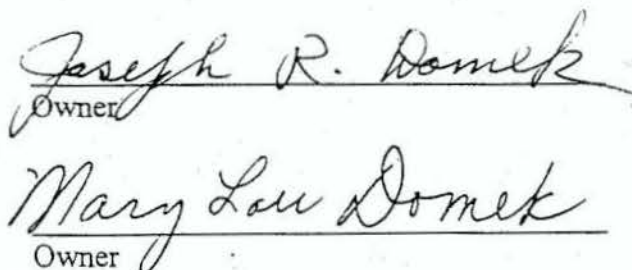 Joseph R. Domek
Owner
Mary Lou Domek
Owner